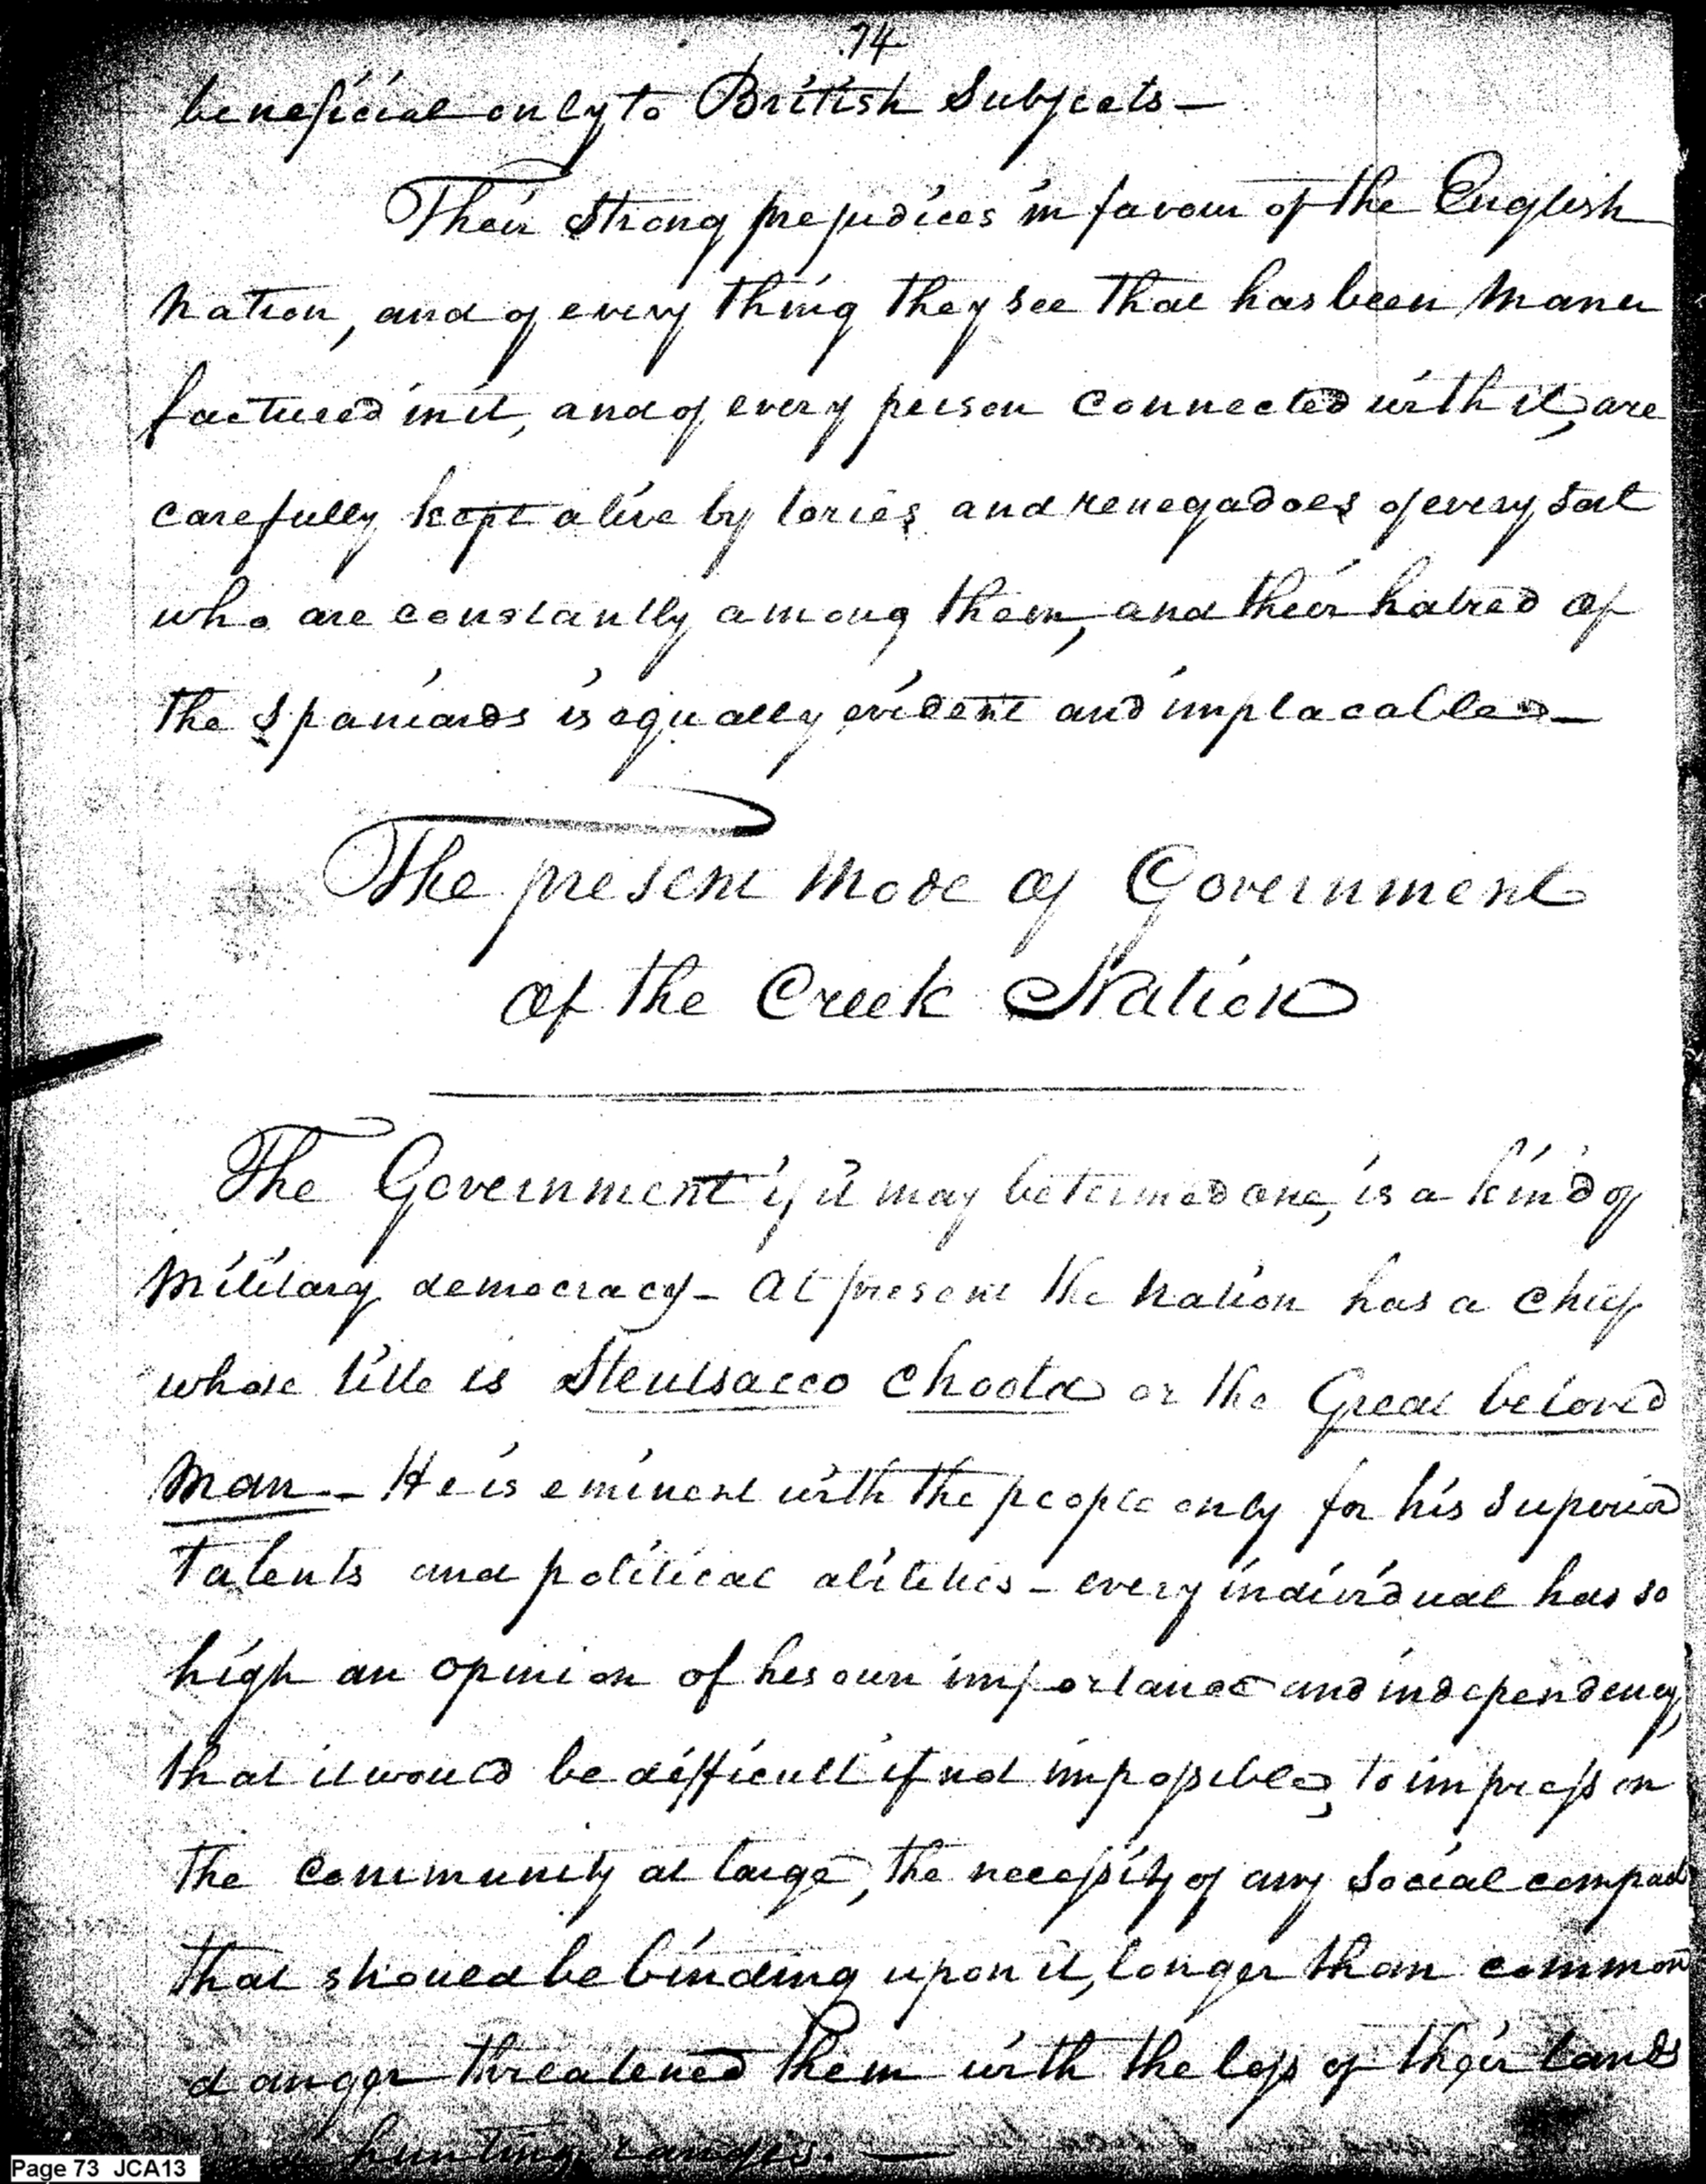 74
beneficial only to British Subjects—
Their strong prejudices in favour of the English
Nation, and of every thing they see that has been Manu
factured in it, and of every person connected with it, are
carefully kept alive by tories and renegadoes of every sort
who are constantly among them, and their hatred of
the Spaniards is equally evident and implacable—
The present Mode of Government
of the Creek Nation
The Government if it may be termed one, is a kind of
Military democracy— At present the Nation has a chief
whose title is Steutsacco Choota or the Great beloved
Man— He is eminent with the people only for his superior
Talents and political abilities— every individual has so
high an opinion of his own importance and independency,
that it would be difficult if not impossible, to impress on
the community at large, the necessity of any social compact
that should be binding upon it, longer than common
danger threatened them with the loss of their lands
hunting ranges. —
Page 73 JCA13